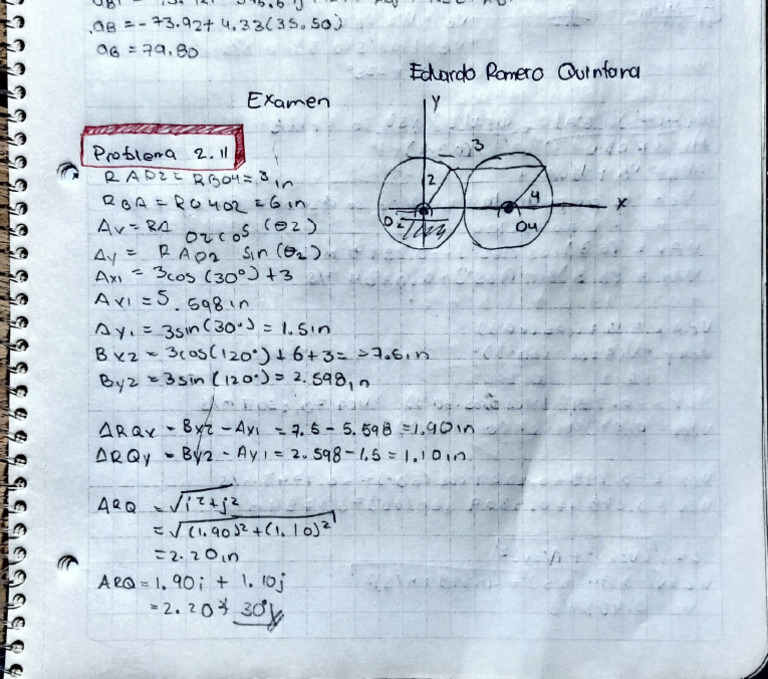 aB = -73.92 + 4.33(35.50)
aB = 79.80
Eduardo Romero Quintara
Examen
Problema 2.11
RAO2 = RBO4 = 3in
RBA = RO4O2 = 6in
Ax = RA O2 cos (θ2)
Ay = RAO2 sin (θ2)
Ax1 = 3cos (30°) + 3
Ax1 = 5.598in
Ay1 = 3sin(30°) = 1.5in
Bx2 = 3cos(120°) + 6 + 3 = 7.5in
By2 = 3sin (120°) = 2.598in
ΔRQx = Bx2 - Ax1 = 7.5 - 5.598 = 1.90in
ΔRQy = By2 - Ay1 = 2.598 - 1.5 = 1.10in
ΔRQ = √i²+j²
= √(1.90)²+(1.10)²
= 2.20in
ΔRQ = 1.90i + 1.10j
= 2.20∡ 30°
y
3
2
4
x
O2
O4